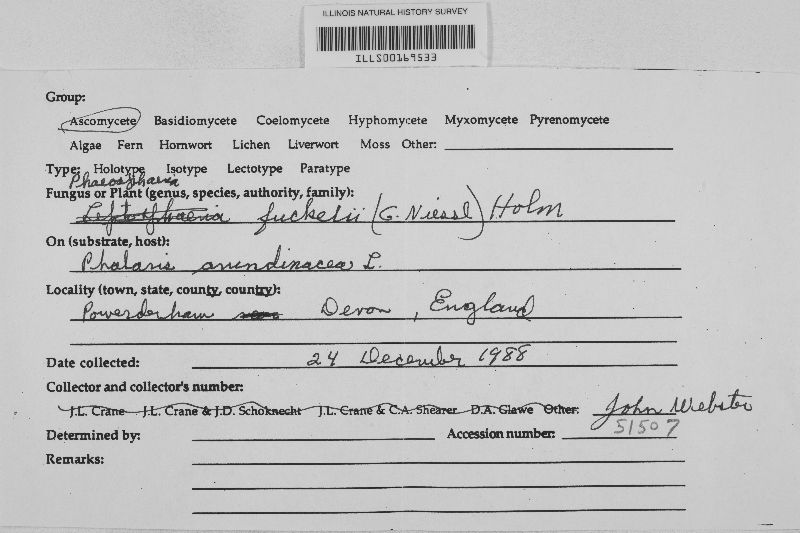 ILLINOIS NATURAL HISTORY SURVEY
ILLS00169533
Group:
Ascomycete Basidiomycete Coelomycete Hyphomycete Myxomycete Pyrenomycete
Algae Fern Hornwort Lichen Liverwort Moss Other:
Type: Holotype Isotype Lectotype Paratype
Phaeosphaeria
Fungus or Plant (genus, species, authority, family):
Leptosphaeria fuckelii (G. Niessl) Holm
On (substrate, host):
Phalaris arundinacea L.
Locality (town, state, county, country):
Powerderham Devon, England
Date collected: 24 December 1988
Collector and collector's number:
J.L. Crane J.L. Crane & J.D. Schoknecht J.L. Crane & C.A. Shearer D.A. Glawe Other: John Webster
Determined by: Accession number: 51507
Remarks: